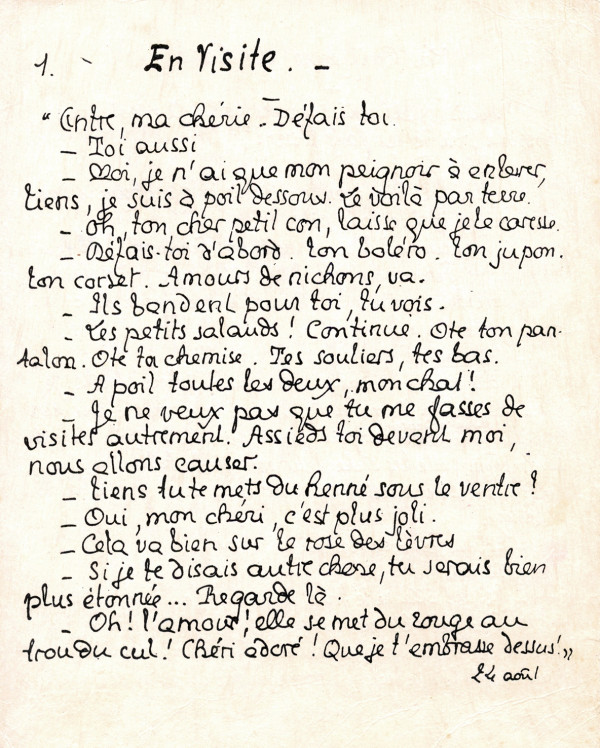 1. - En Visite. -
“ Entre, ma chérie. - Défais toi.
- Toi aussi
- Moi, je n'ai que mon peignoir à enlever,
tiens, je suis à poil dessous. Le voilà par terre.
- Oh, ton cher petit con, laisse que je le caresse.
- Défais-toi d'abord. ton boléro. ton jupon.
ton corset. Amours de nichons, va.
- Ils bandent pour toi, tu vois.
- Les petits salauds ! Continue. Ote ton pan-
talon. Ote ta chemise. Tes souliers, tes bas.
- A poil toutes les deux, mon chat !
- Je ne veux pas que tu me fasses de
visites autrement. Assieds toi devant moi,
nous allons causer.
- tiens tu te mets du henné sous le ventre ?
- Oui, mon chéri, c'est plus joli.
- Cela va bien sur le rose des lèvres
- Si je te disais autre chose, tu serais bien
plus étonnée... Regarde là.
- Oh ! l'amour ! elle se met du rouge au
trou du cul ! Chéri adoré ! Que je t'embrasse dessus ! ”
24 août